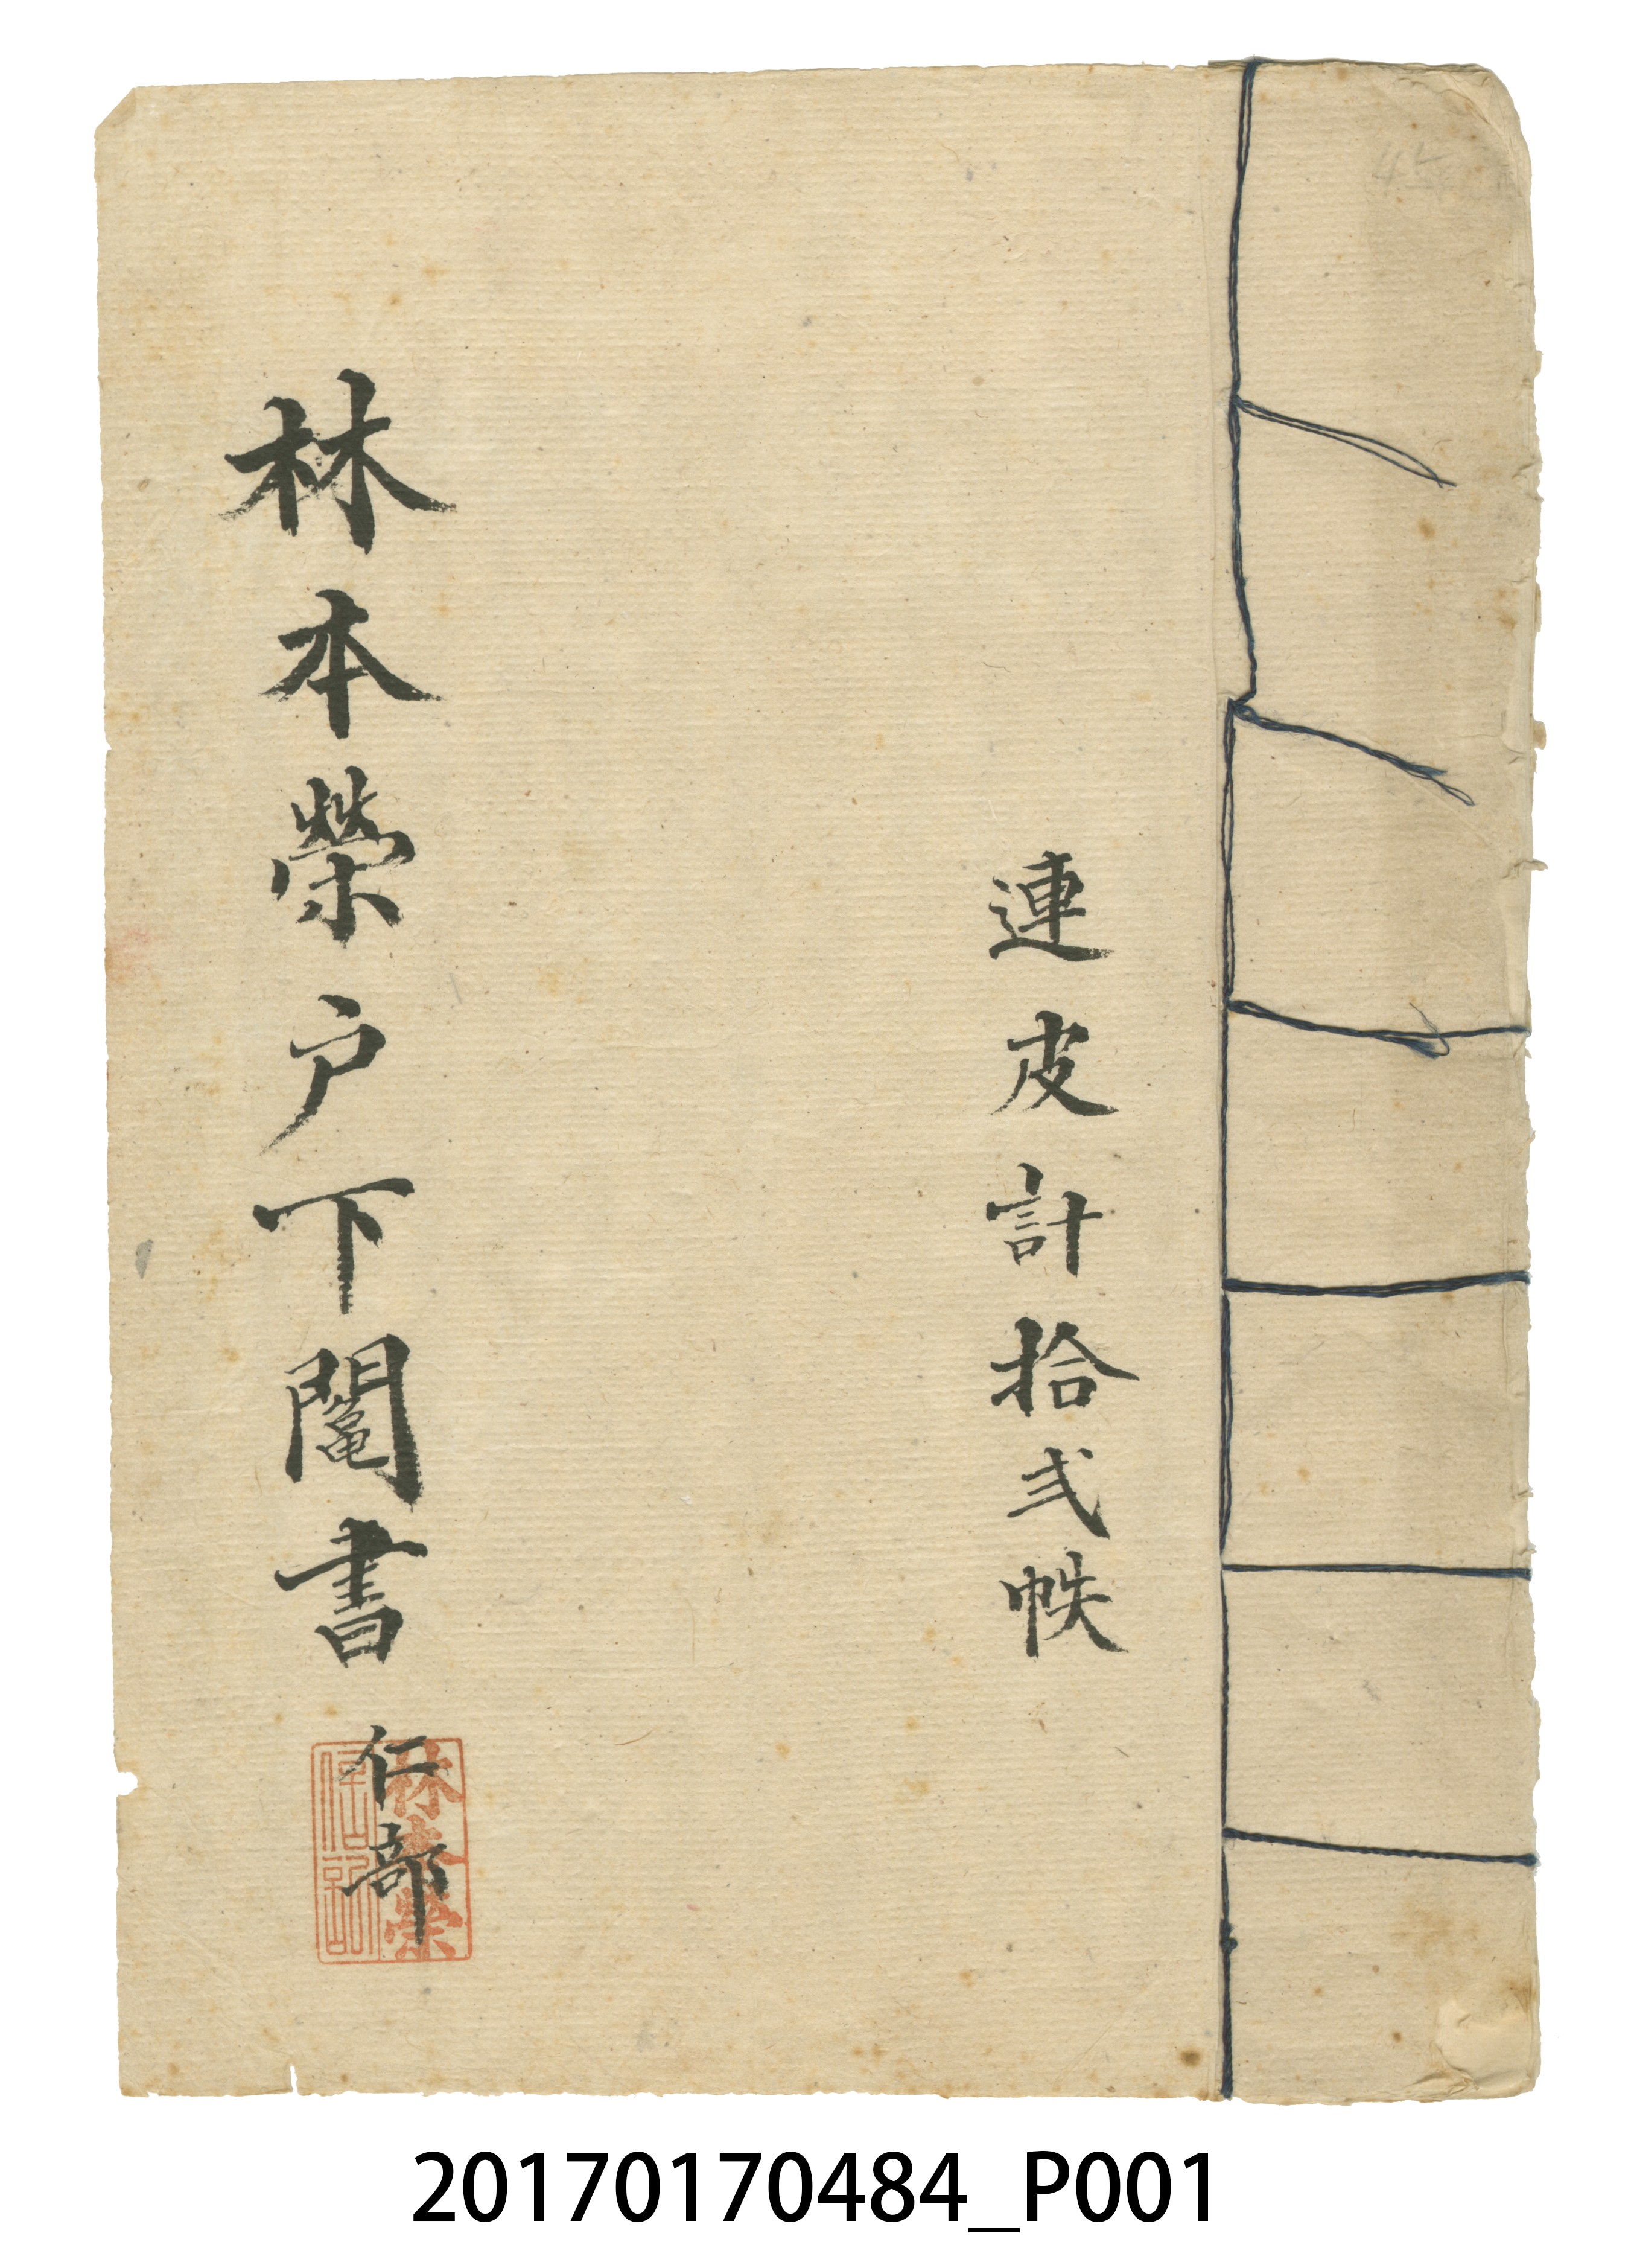 連皮計拾弍帙
林本榮户下鬮書
仁部
林本榮
信記
20170170484_P001